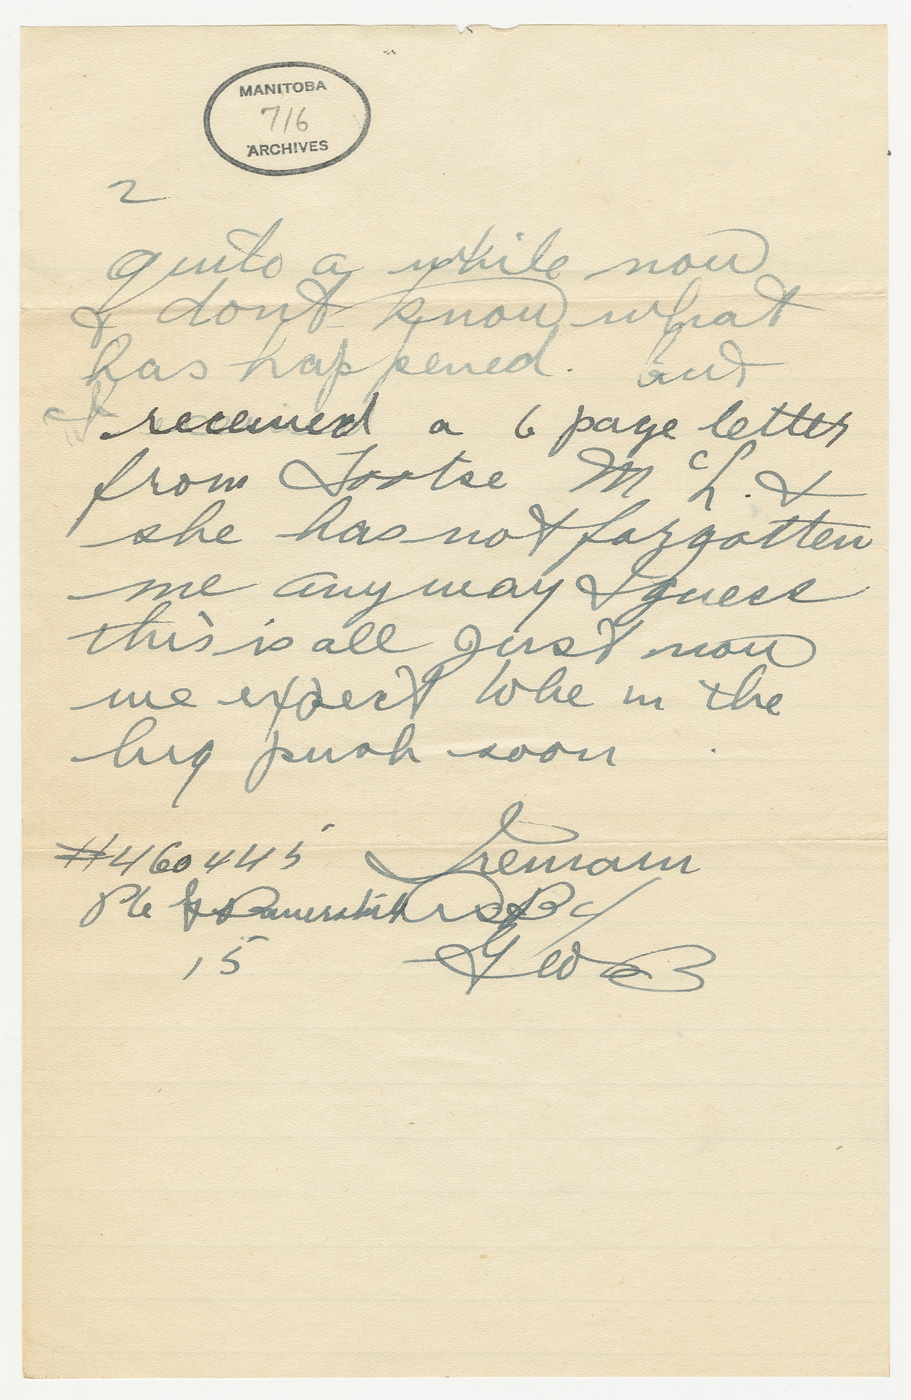 MANITOBA
716
ARCHIVES
2
quite a while now
I dont know what
has happened. but
I received a 6 page letter
from Tootse McL. &
she has not forgotten
me anyway I guess
this is all just now
we expect to be in the
big push soon
#460445 I remain
Pte G Battershill
15 Geo B